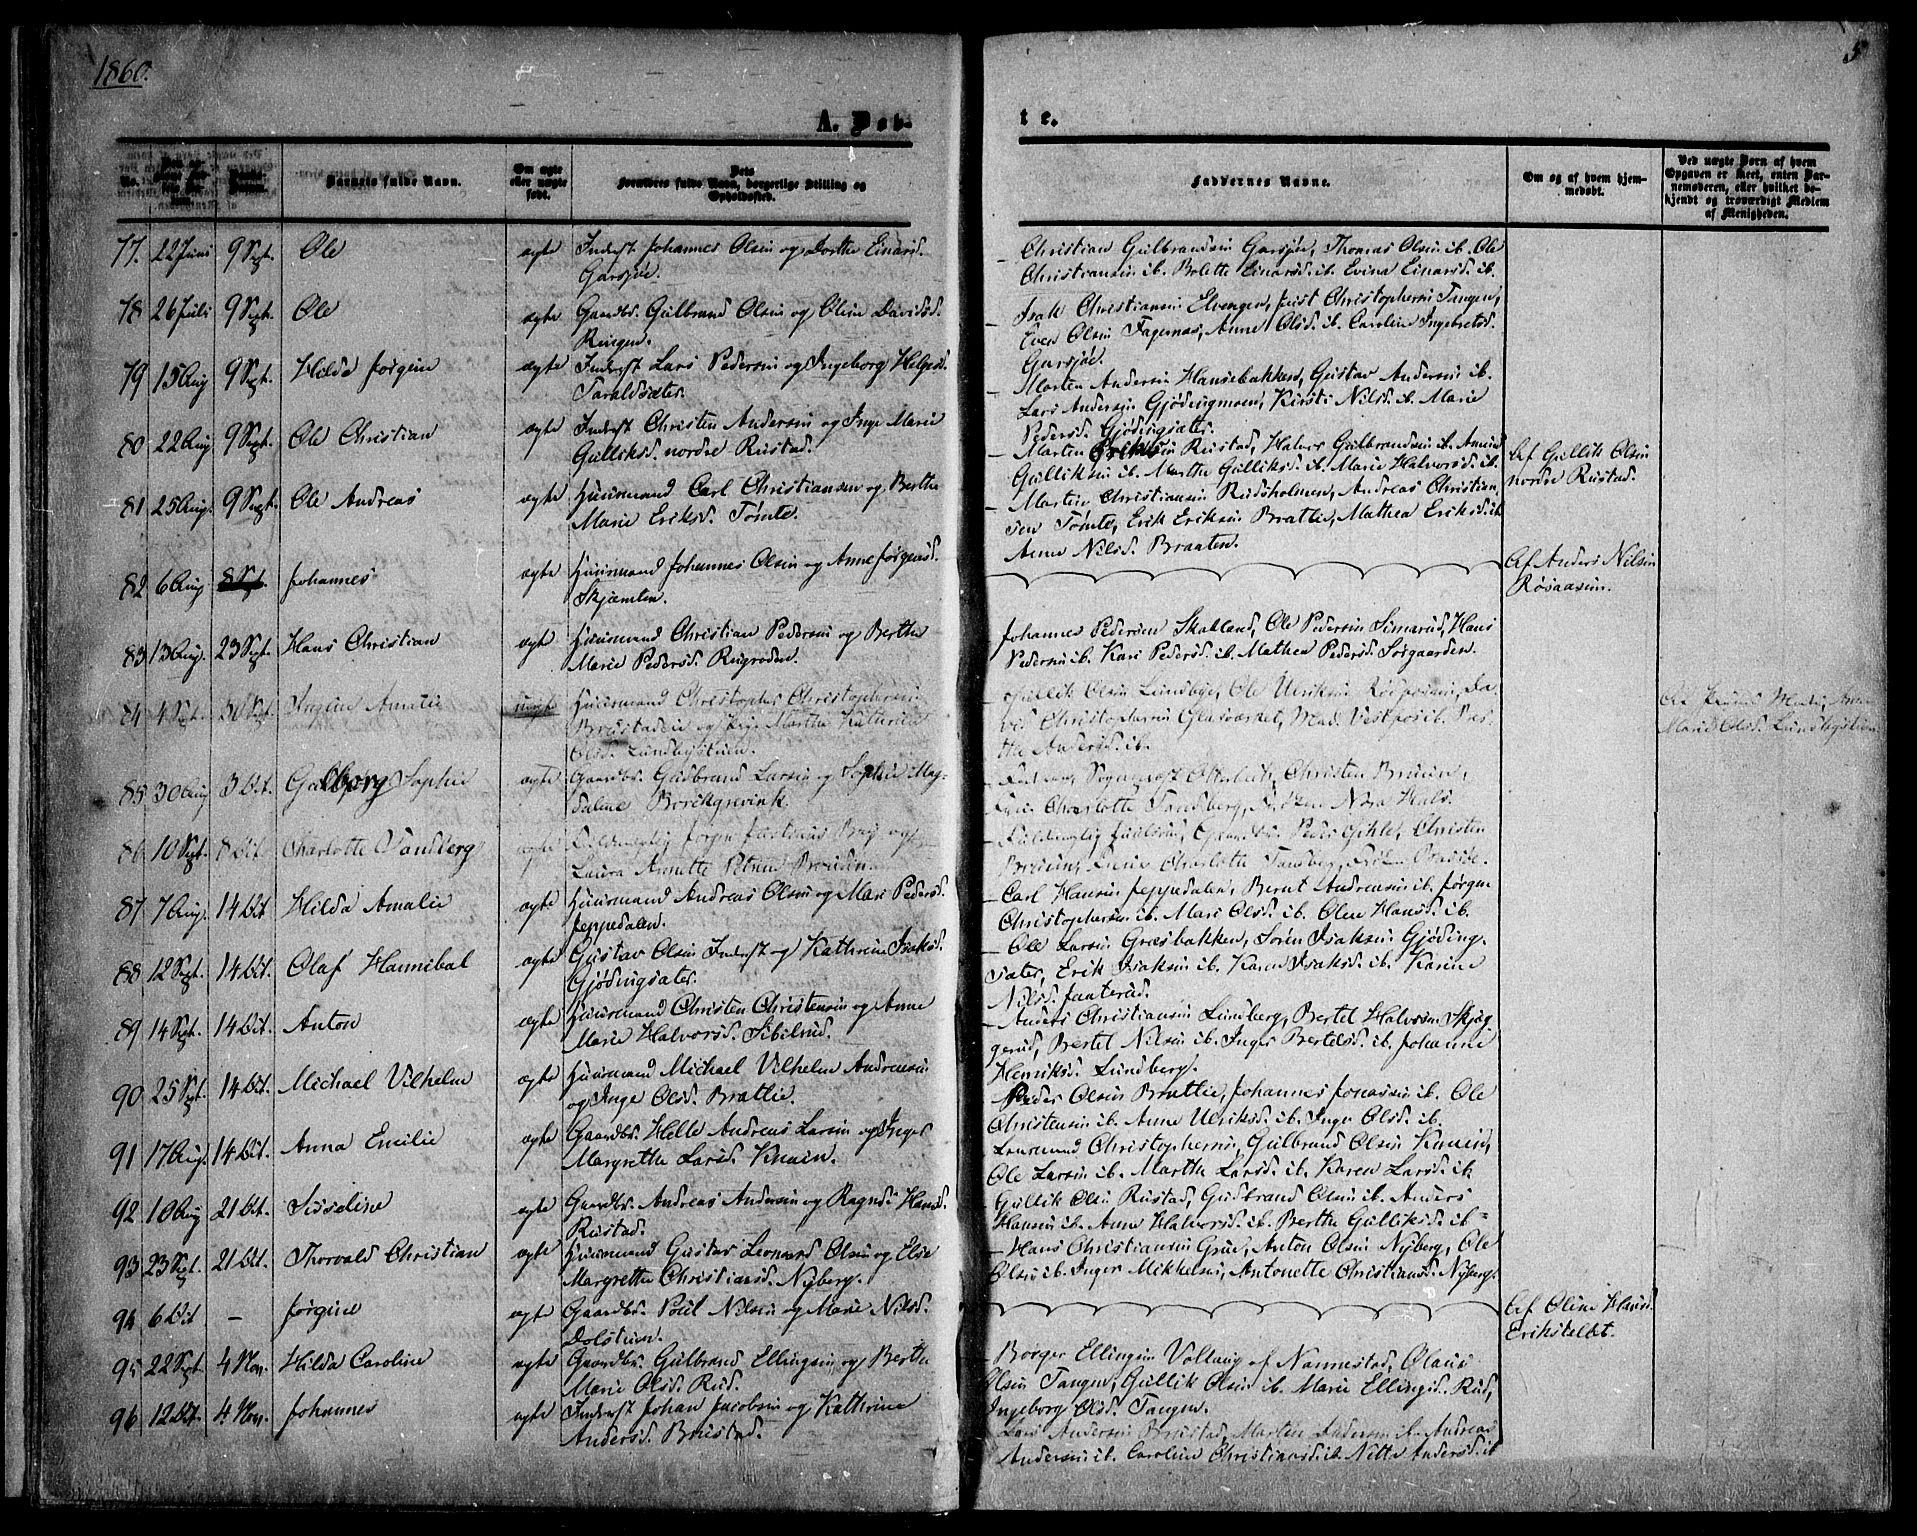 1860.
5
A. Døb-
te.
No.
Barnets fulde Navn.
Om ægte
eller uægte
født.
Dets
Forældres fulde Navn, borgerlige Stilling og
Opholdssted.
Faddernes Navne.
Om og af hvem hjem-
medøbt.
Ved uægte Børn af hvem
Opgaven er skeet, enten Bar-
nemoderen, eller hvilket be-
kjendt og troværdigt Medlem
af Menigheden.
77. 22 Juni 9 Sept. Ole ægte Inderst Johannes Olsen og Dorthe Einarsd.
Garsjøe.
Christian Gulbrandsen Garsjøe, Thomas Olsen ib. Ole
Christiansen ib. Bolette Einarsd. ib. Evina Einarsd. ib.
78 26 Juli 9 Sept. Ole ægte Gaardbr. Gulbrand Olsen og Oline Davidsd.
Ringen.
Isak Christiansen Elvengen, Christophersen Tangen,
Even Olsen Fagernæs, Anne Olsd. ib. Caroline Ingebretsd.
Garsjøe.
79 15 Aug 9 Sept. Hilda Jørgine ægte Inderst Lars Pedersen og Ingeborg Helgesd.
Taraldsæter.
Marten Andersen Hansebakken, Gustav Andersen ib.
Lars Andersen Gjødingmoen, Kirsti Nilsd. ib. Marie
Pedersd. Gjødingsæter.
80 22 Aug 9 Sept. Ole Christian ægte Inderst Christen Andersen og Inge Marie
Gulliksd. nordre Rustad.
Marten Eriksen Rustad, Halvor Gulbrandsen ib.
Gulliksen ib. Marthe Gulliksd. ib. Marie Halvorsd. ib.
Af Gullik Olsen
nordre Rustad.
81 25 Aug. 9 Sept. Ole Andreas ægte Huusmand Carl Christiansen og Berthe
Marie Eriksd. Tømte.
Martin Christiansen Rudsholmen, Andreas Christian-
sen Tømte, Erik Eriksen Brattie, Mathea Eriksd. ib.
Anne Nilsd. Braaten.
82 6 Aug Johannes ægte Huusmand Johannes Olsen og Anne Jørgensd.
Skjæmten.
Af Anders Nilsen
Røsaasen.
83 13 Aug. 23 Sept. Hans Christian ægte Huusmand Christian Pedersen og Berthe
Marie Pedersd. Rugroden.
Johannes Pedersen Skalland, Ole Pedersen Simarud, Hans
Pedersen ib. Kari Pedersd. ib. Mathea Pedersd. Sørgaarden.
84 4 Sept. 30 Sept. Amalie Huusmand Christopher Christophersen
og Pige Marthe Kathrine
Olsd. Lundbystuen.
Gullik Olsen Lundbye, Ole Ulriksen
Christophersen Glasværket,
Andersd. ib.
Marie Olsd. Lundbystuen
85 30 Aug 3 Oct. Gulborg Sophie ægte Gaardbr. Gulbrand Larsen og Sophie Mag-
dalene Borchgrevink.
Christen Bruun,
Charlotte Tandberg,
86 10 Sept. 8 Oct. Charlotte Tandberg ægte
Laura Annette
Gaardbr. Peder Gihle, Christen
Charlotte
87 7 Aug. 14 Oct. Hilda Amalie ægte Huusmand Andreas Olsen og Mari Pedersd.
Jeppedalen.
Carl Hansen Jeppedalen, Bernt Andreasen ib. Jørgen
Christophersen ib. Mari Olsd. ib. Olene Hansd. ib.
88 12 Sept. 14 Oct. Olaf Hannibal ægte Gustav Olsen Inderst og Kathrine Isaksd.
Gjødingsæter.
Ole Larsen Græsbakken, Søren Isaksen Gjøding-
sæter, Erik Isaksen ib. Karen Isaksd. ib. Karine
Nilsd. Janterud.
89 14 Sept. 14 Oct. Anton ægte Huusmand Christen Christensen og Anne
Marie Halvorsd. Sibilrud.
Anders Christiansen Lundberg, Bertel Halvorsen Skjøg-
gerud, Bertel Nilsen ib. Inger Bertelsd. ib. Johanne
Henriksd. Lundberg.
90 25 Sept. 14 Oct. Michael Vilhelm ægte Huusmand Michael Vilhelm Andreasen
og Inge Olsd. Brattie.
Peder Olsen Brattie, Johannes Jonassen ib. Ole
Christensen ib. Anne Ulriksd. ib. Inge Olsd. ib.
91 17 Aug. 14 Oct. Anna Emilie ægte Gaardbr. Helle Andreas Larsen og Inger
Margrethe Larsd. Knain.
Christophersen, Gulbrand Olsen Knain,
Ole Larsen ib. Marthe Larsd. ib. Karen Larsd. ib.
92 10 Aug 21 Oct. Sisseline ægte Gaardbr. Andreas Andersen og Ragnd. Hansd.
Rustad.
Gullik Olsen Rustad, Gudbrand Olsen ib. Anders
Hansen ib. Anne Halvorsd. ib. Berthe Gulliksd. ib
93 23 Sept. 21 Oct. Thorvald Christian ægte Huusmand Gustav Leonard Olsen og Else
Margrethe Christiansd. Nyberg.
Hans Christiansen Grue, Anton Olsen Nyberg, Ole
Olsen ib. Inger Mikkelsen, Antonette Christiansd. Nyberg.
94 6 Oct – Jørgine ægte Gaardbr. Poul Nilsen og Marie Nilsd.
Dolstuen.
Af Oline Hansd.
Erikstellet.
95 22 Sept 4 Nov. Hilda Caroline ægte Gaardbr. Gulbrand Ellingsen og Berthe
Marie Olsd. Rud.
Borger Ellingsen Vollaug af Nannestad, Olaus
Olsen Tangen, Gullik Olsen ib. Marie Ellingsd. Rud,
Ingeborg Olsd. Tangen.
96 12 Oct. 4 Nov. Johannes ægte Inderst Johan Jacobsen og Kathrine
Andersd. Brustad.
Lars Andersen Brustad, Martin Andersen ib. Andreas
Andersen ib. Caroline Christiansd. ib. Nille Andersd. ib